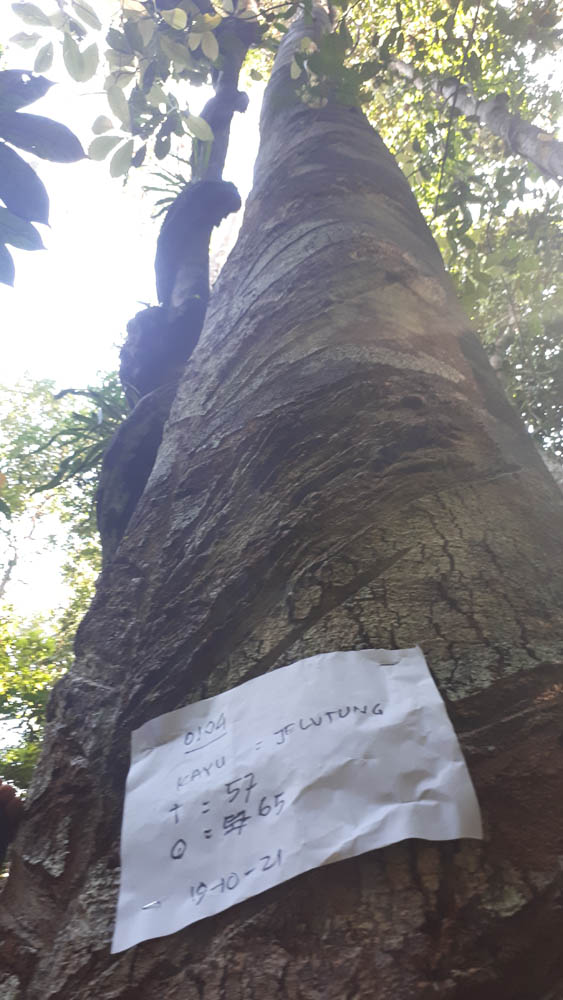 0104
KAYU = JELUTUNG
T = 57
Q = 65
19-10-21